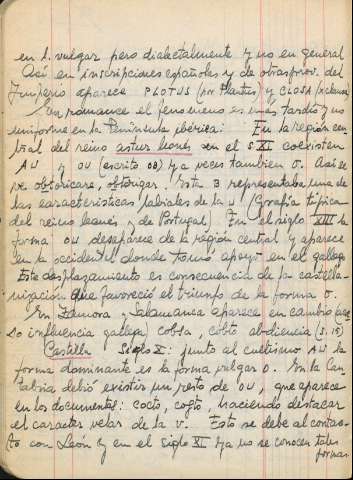 en l. vulgar pero dialectalmente y no en general
Así en inscripciones españolas y de otras prov. del
Imperio aparece PLOTUS (por Plautus) y CLOSA (x clausa)
En romance el fenomeno es más tardío y no
uniforme en la Península ibérica: En la región cen
tral del reino astur leonés en el S XI coexisten
AU y OU (escrito OB) y a veces tambien O. Así se
ve obtoricare, obtorgar. Esta B representaba una de
las características labiales de la U (Grafía típica
del reino leonés y de Portugal). En el siglo XIII la
forma OU desaparece de la región central y aparece
en la occidental donde tomó apoyo en el gallego
Este desplazamiento es consecuencia de la castella-
nización que favoreció el triunfo de la forma O.
En Zamora y Salamanca aparece en cambio
so influencia gallega) cobsa, cobto abdiencia (S.13)
Castilla Siglo X: junto al cultismo AU la
forma dominante es la forma vulgar O. En la Can
tabria debió existir un resto de OU, que aparece
en los documentos: cocto, cogto, haciendo destacar
el caracter velar de la U. Esto se debe al contac-
to con León y en el siglo XI ya no se conocen tales
formas